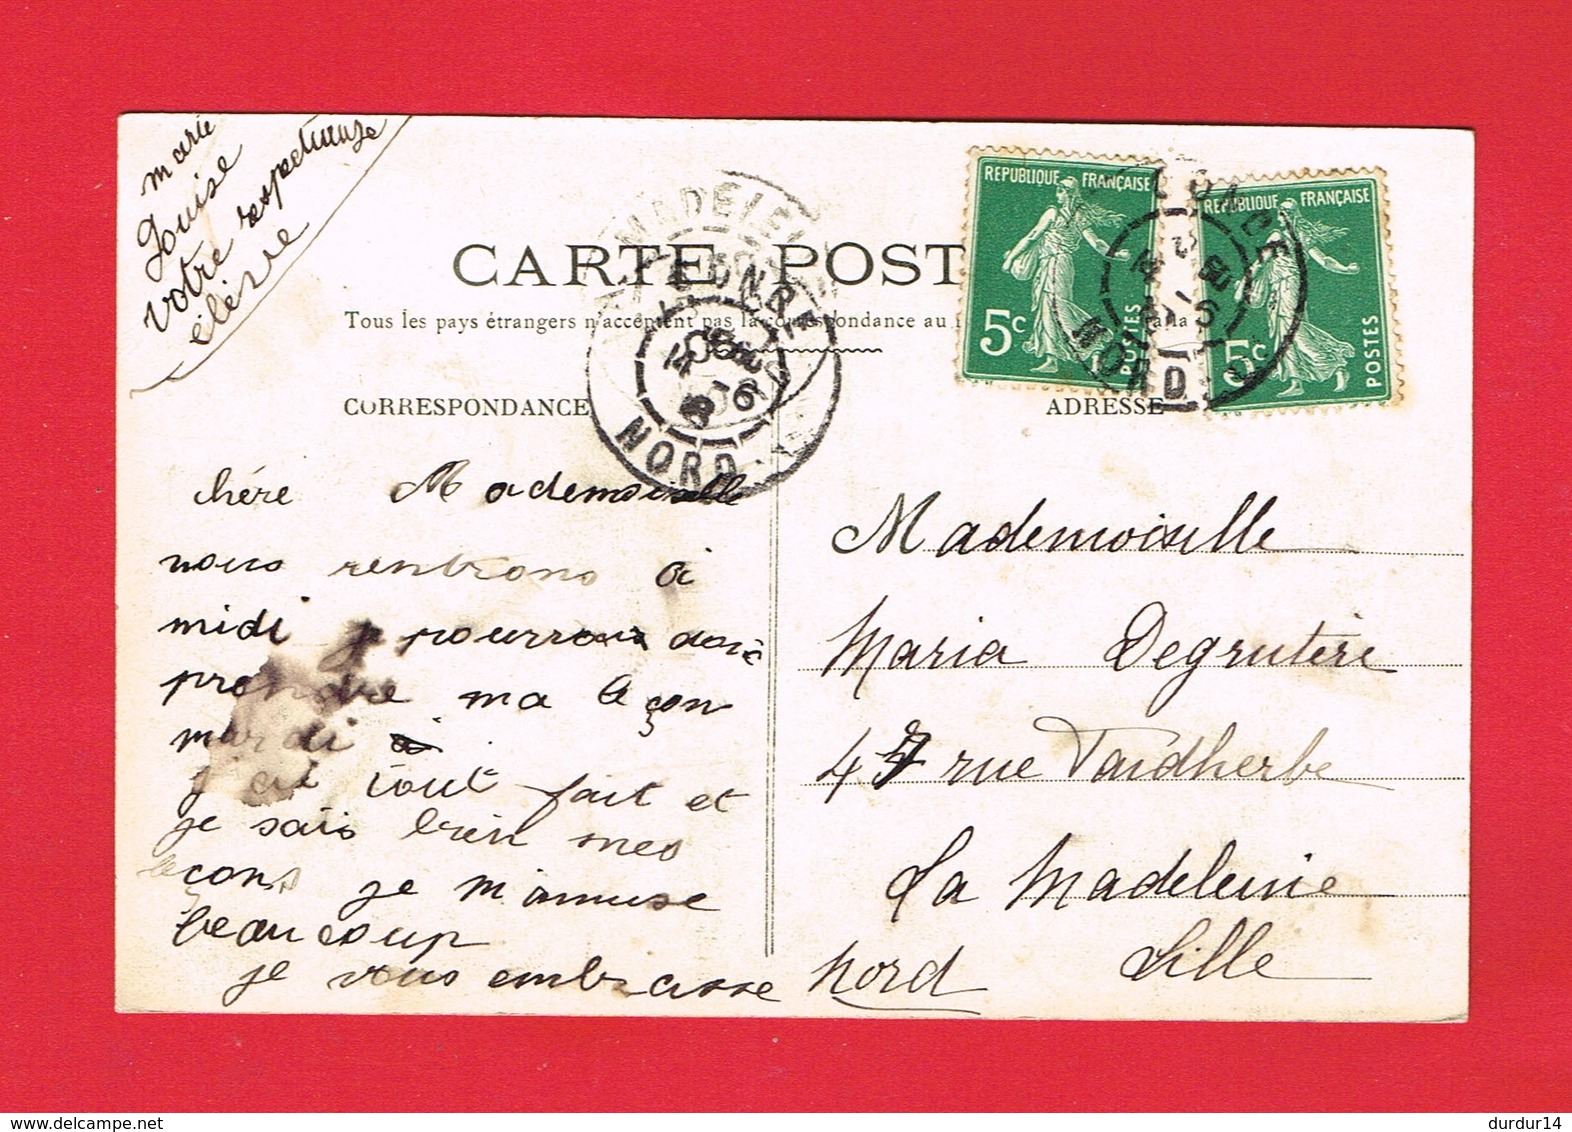 marie
Louise
votre respectueuse
élève
CARTE POST
Tous les pays étrangers n'acceptent pas la correspondance au
CORRESPONDANCE
ADRESSE
REPUBLIQUE FRANÇAISE
5c
POSTES
REPUBLIQUE FRANÇAISE
5c
POSTES
MADELEI
NORD
NORD
chére Mademoiselle
nous rentrons à
midi je pourrais donc
prendre ma leçon
mardi
j'ai tout fait et
je sais bien mes
leçons je m'amuse
beaucoup
je vous embrasse
Mademoiselle
Maria Degrutère
47 rue Faidherbe
La Madeleine
Lille
Nord
durdur14